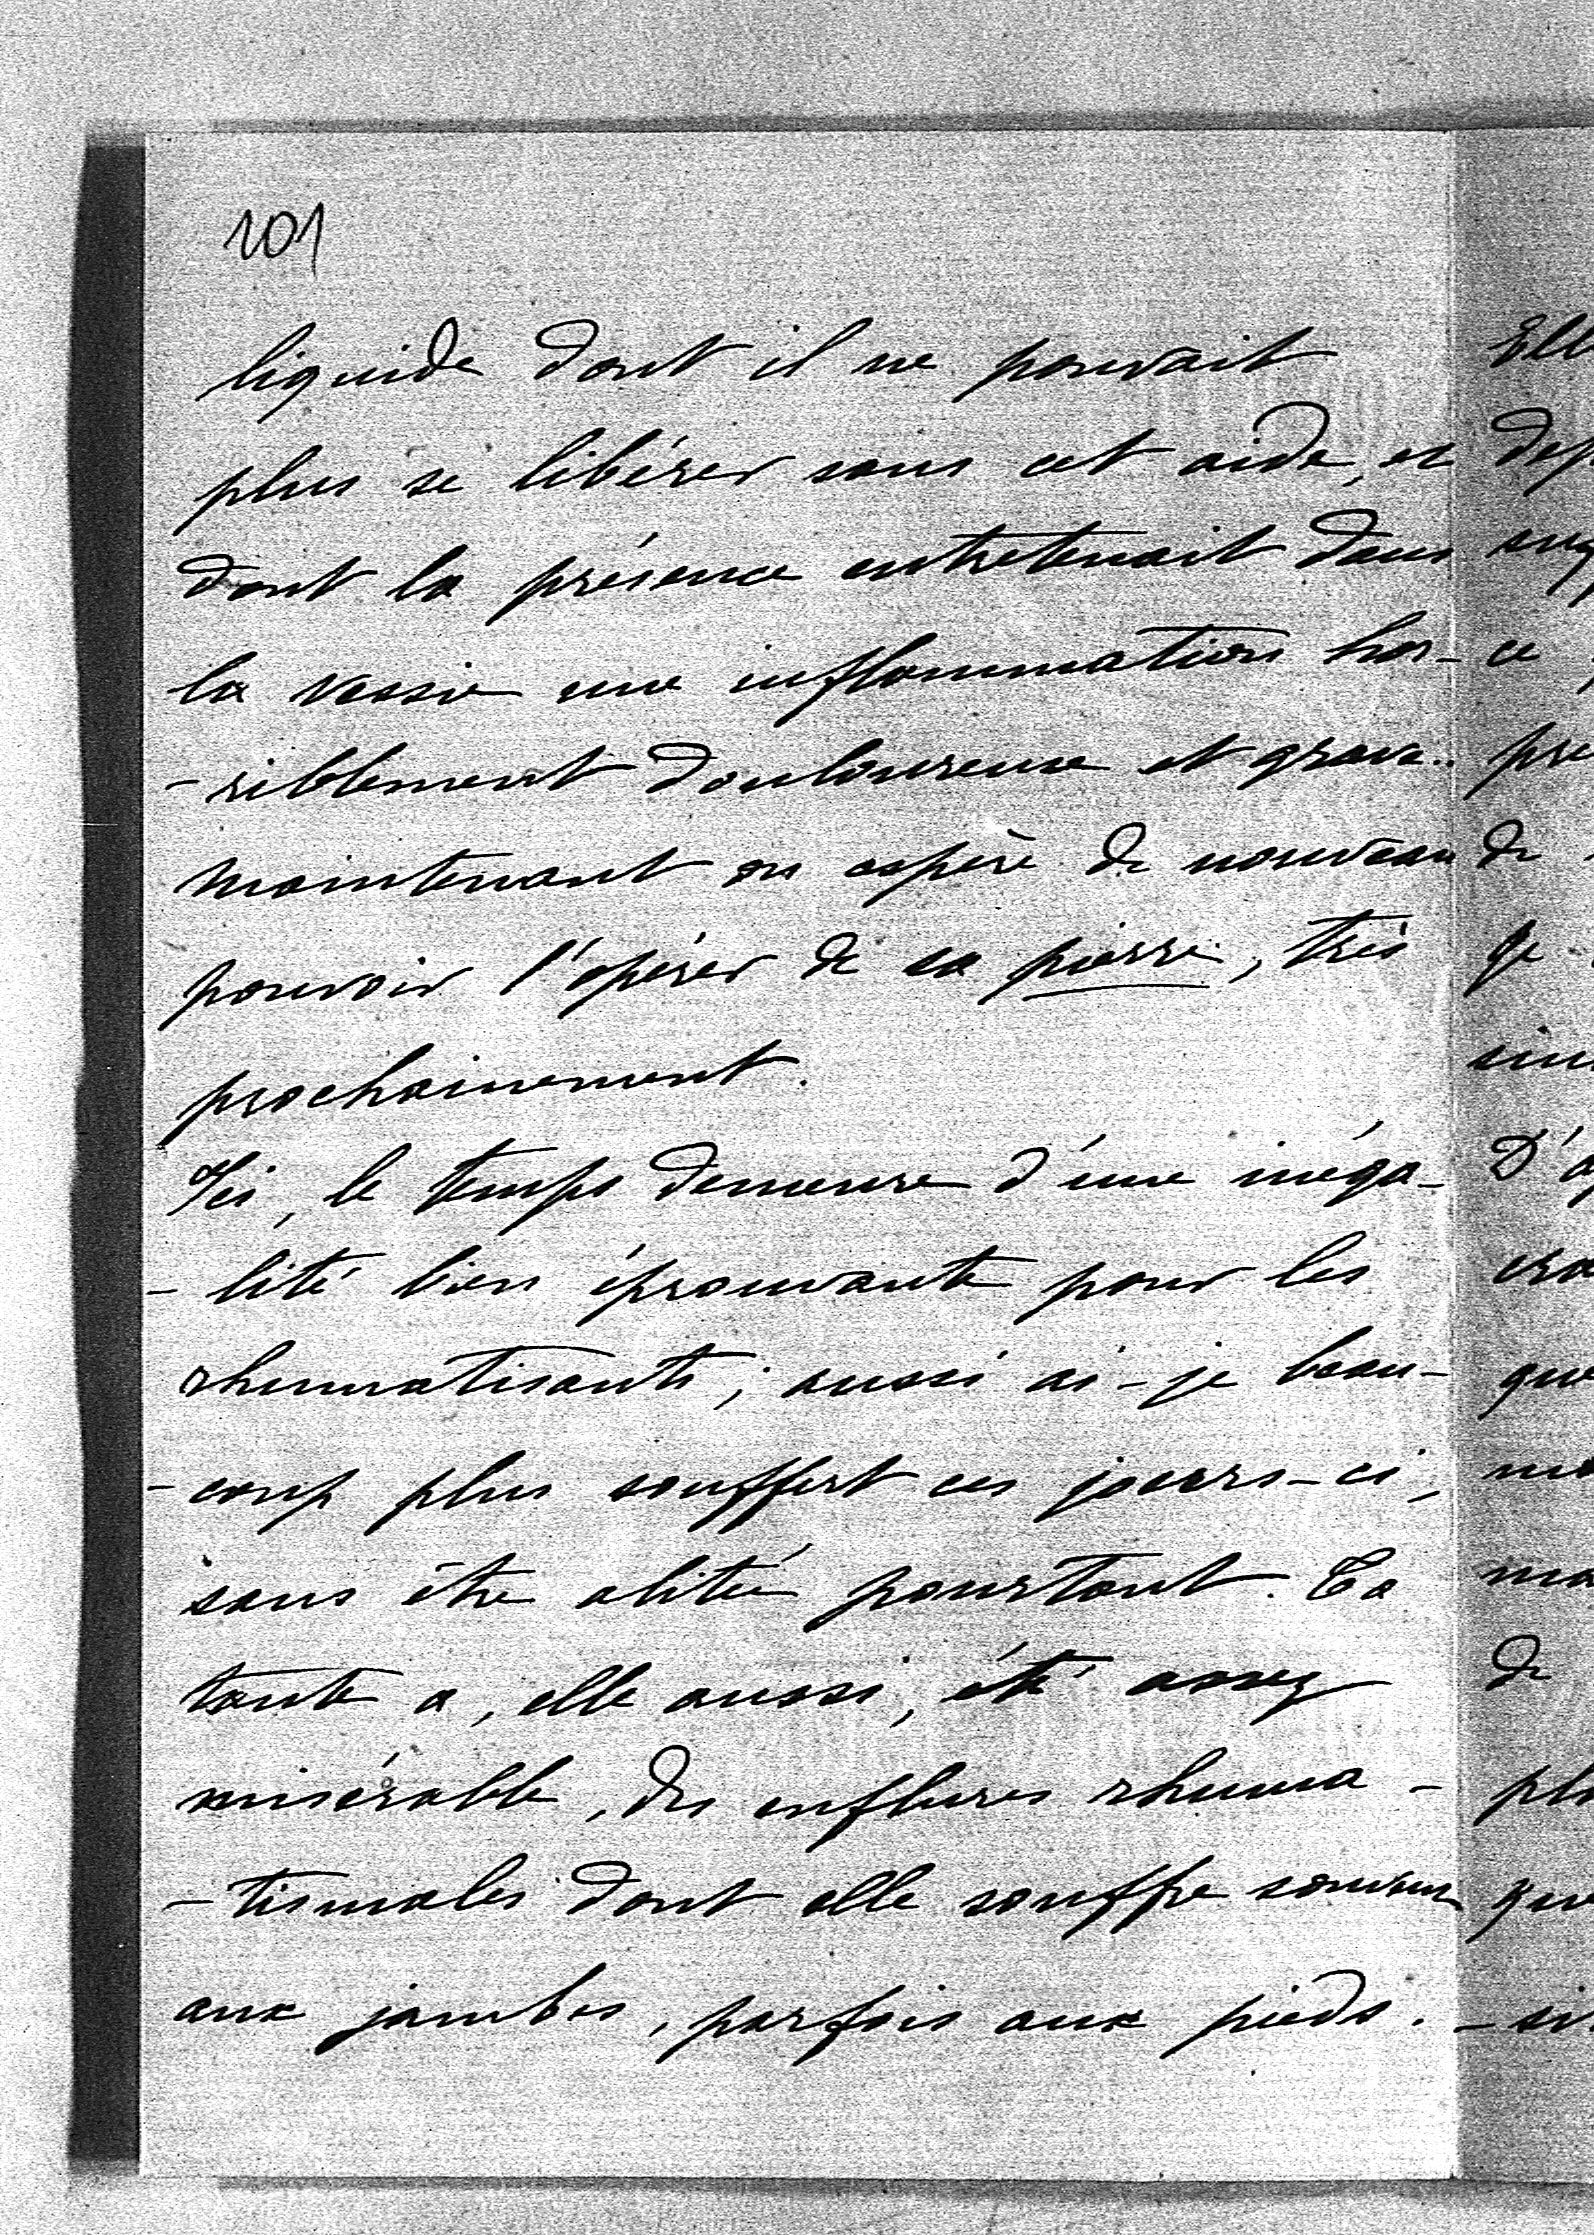 101
liquide dont il ne pouvait
plus se libérer sans cet aide, et
dont la présence entretenait dans
la vessie une inflammation hor-
-riblement douloureuse et grave..
maintenant on espère de nouveau
pouvoir l'opérer de sa pierre, très
prochainement.
Ici, le temps demeure d'une inéga-
-lité bien éprouvante pour les
rhumatisants; aussi ai-je beau-
-coup plus souffert ces jours-ci,
sans être alitée pourtant. Ta
tante a, elle aussi, été assez
misérable, des enflures rhuma-
-tismales dont elle souffre souvent
aux jambes, parfois aux pieds.